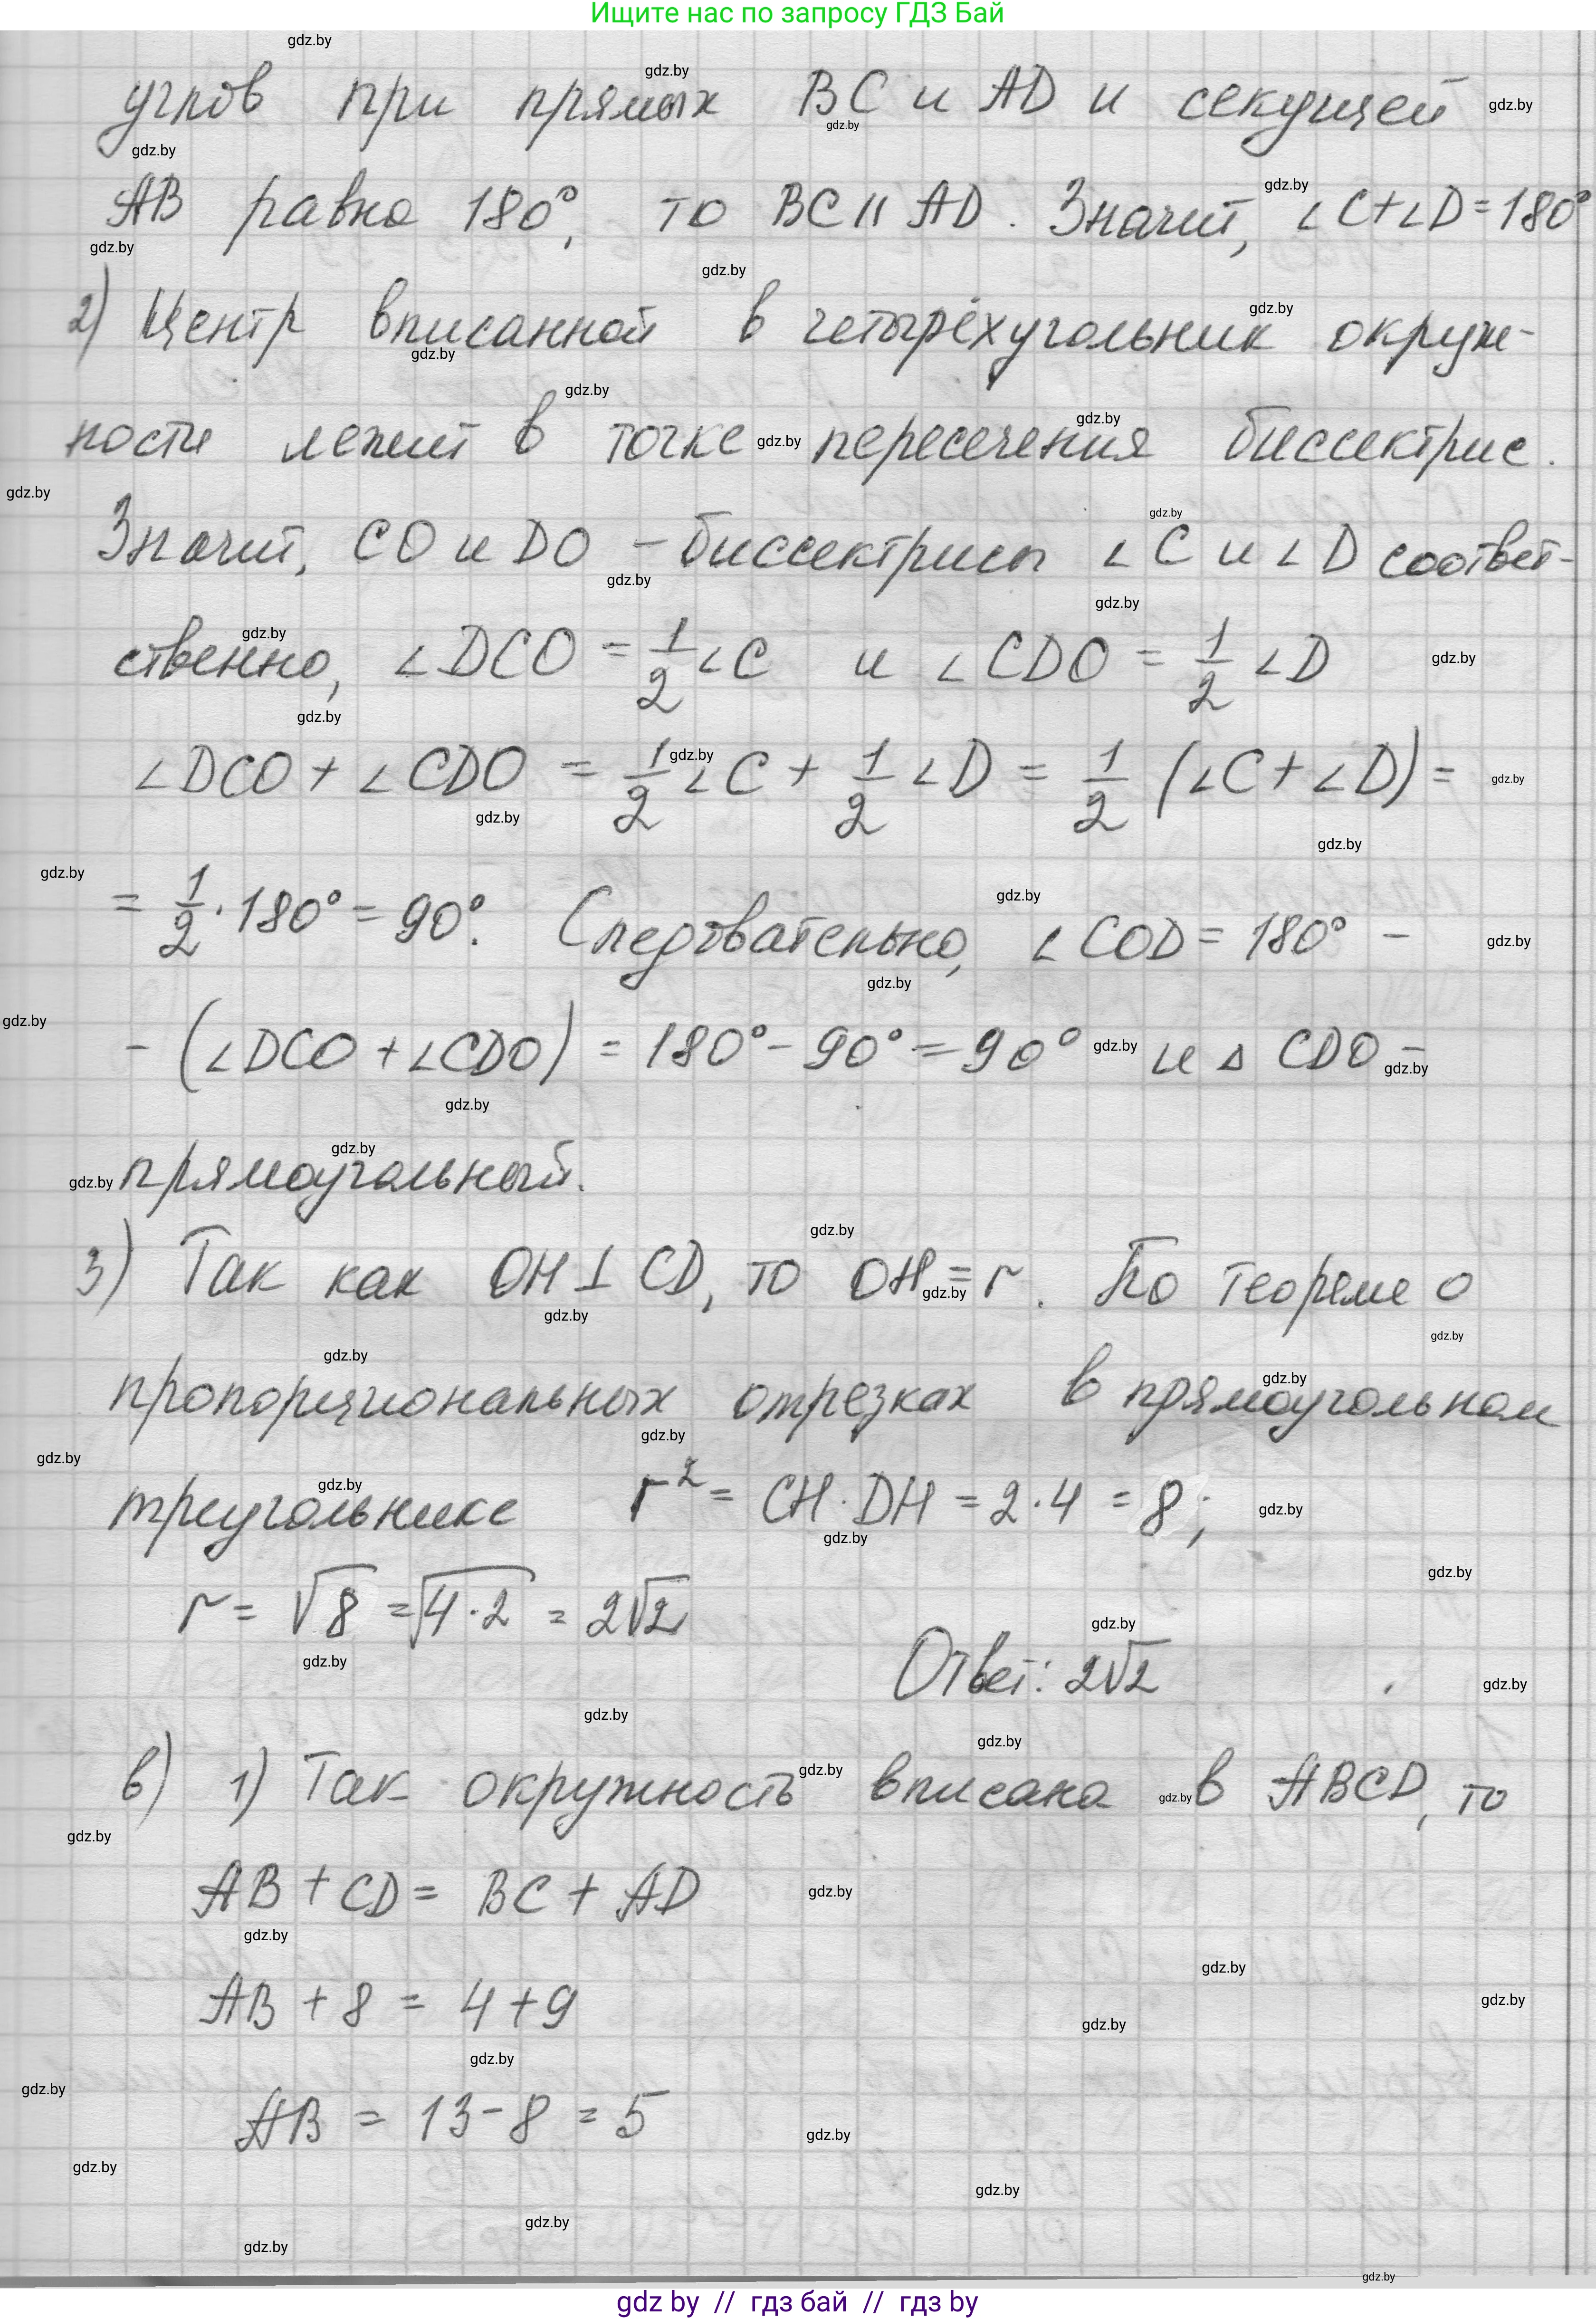 Ищите нас по запросу ГДЗ Бай
углов при прямых BC и AD и секущей
AB равна 180°, то BC || AD. Значит, ∠C+∠D=180°
2) Центр вписанной в четырёхугольник окруж-
ности лежит в точке пересечения биссектрис.
Значит, CO и DO – биссектрисы ∠C и ∠D соответ-
ственно, ∠DCO = 1/2 ∠C и ∠CDO = 1/2 ∠D
∠DCO + ∠CDO = 1/2 ∠C + 1/2 ∠D = 1/2 (∠C + ∠D) =
= 1/2 · 180° = 90°. Следовательно, ∠COD = 180° –
– (∠DCO + ∠CDO) = 180° – 90° = 90° и △ CDO –
прямоугольный.
3) Так как OH ⊥ CD, то OH = r. По теореме о
пропорциональных отрезках в прямоугольном
треугольнике r² = CH · DH = 2 · 4 = 8;
r = √8 = √4·2 = 2√2
Ответ: 2√2
в) 1) Так окружность вписана в ABCD, то
AB + CD = BC + AD
AB + 8 = 4 + 9
AB = 13 – 8 = 5
gdz by // гдз бай // гдз by